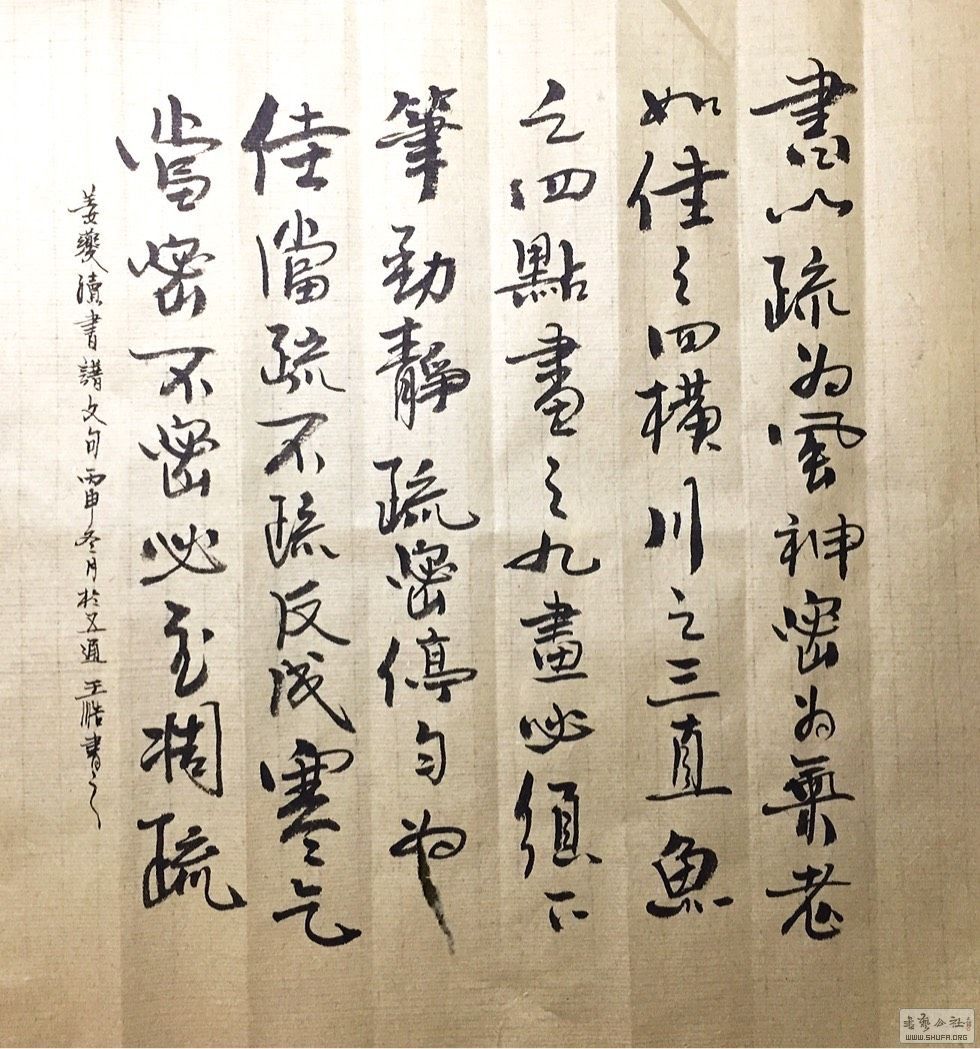 書以疏為風神密為氣老
如佳之四橫川之三直魚
之四點畫之九畫必須下
筆勁靜疏密停勻為
佳當疏不疏反成寒乞
當密不密必至凋疏
姜夔續書譜文句丙申冬月於五通王浩書之
書藝公社
WWW.SHUFA.ORG